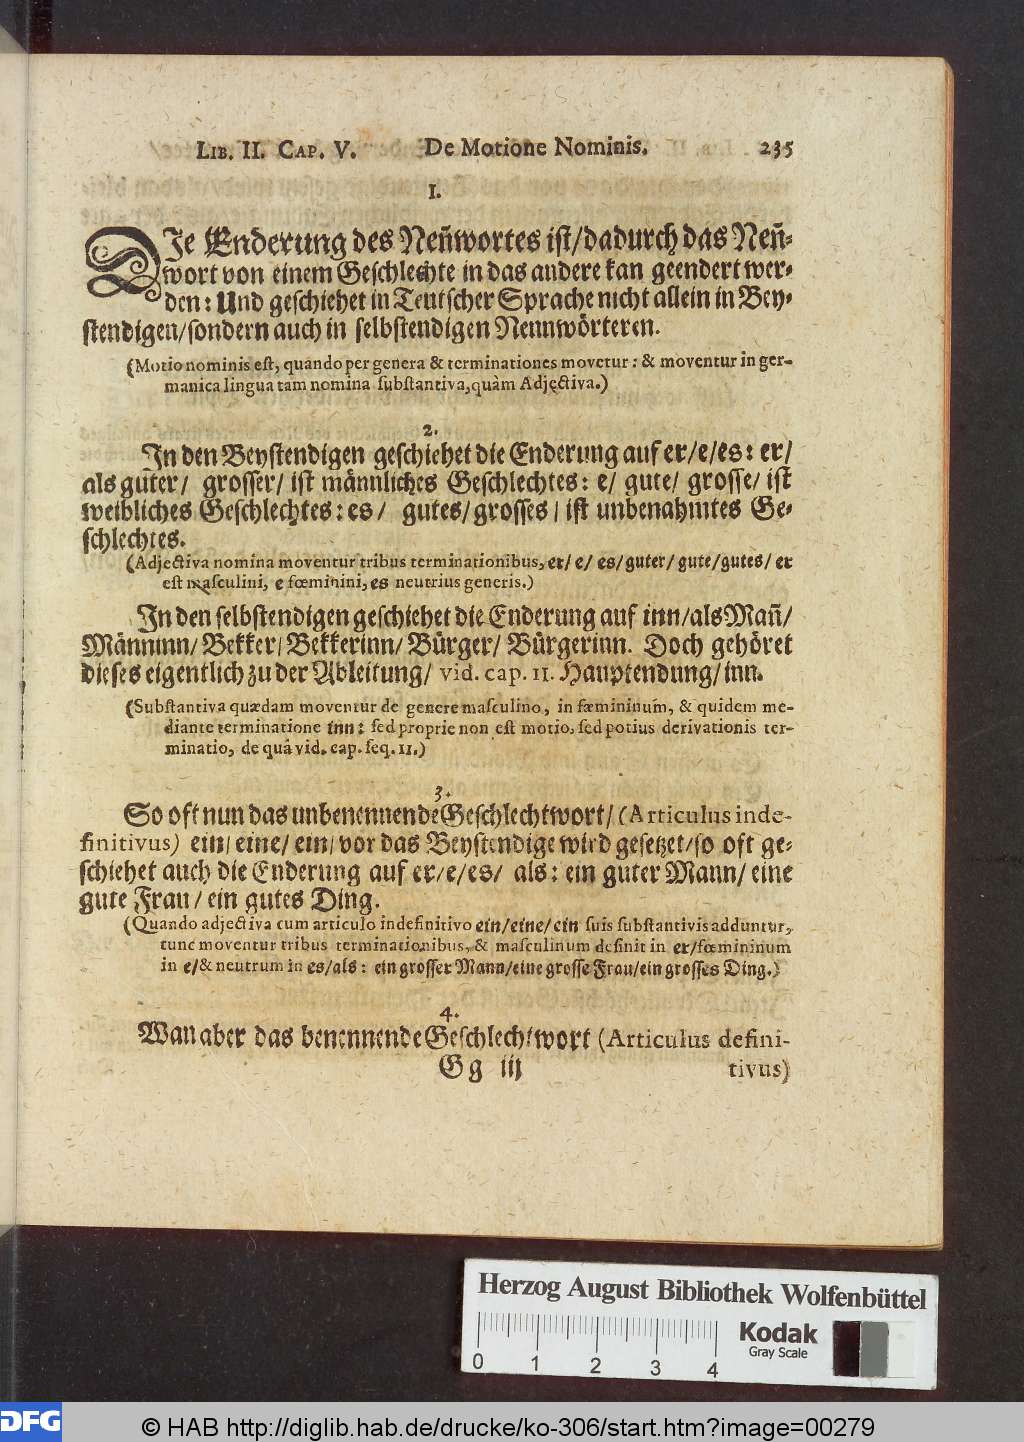 LIB. II. CAP. V. De Motione Nominis. 235
I.
DIe Enderung des Neñwortes ist/dadurch das Neñ-
wort von einem Geschlechte in das andere kan geendert wer-
den: Und geschiehet in Teutscher Sprache nicht allein in Bey-
stendigen/sondern auch in selbstendigen Nennwörteren.
(Motio nominis est, quando per genera & terminationes movetur: & moventur in ger-
manica lingua tam nomina substantiva, quàm Adjectiva.)
2.
In den Beystendigen geschiehet die Enderung auf er/e/es: er/
als guter/ grosser/ ist männliches Geschlechtes: e/ gute/ grosse/ ist
weibliches Geschlechtes: es/ gutes/grosses/ ist unbenahmtes Ge-
schlechtes.
(Adjectiva nomina moventur tribus terminationibus, er/ e/ es/guter/ gute/gutes/ er
est masculini, e fœminini, es neutrius generis.)
In den selbstendigen geschiehet die Enderung auf inn/als Mañ/
Männinn/ Bekker/ Bekkerinn/ Bürger/ Bürgerinn. Doch gehöret
dieses eigentlich zu der Ableitung/ vid. cap. 11. Hauptendung/ inn.
(Substantiva quædam moventur de genere masculino, in fœmininum, & quidem me-
diante terminatione inn: sed proprie non est motio, sed potius derivationis ter-
minatio, de quâ vid. cap. seq. 11.)
3.
So oft nun das unbenennende Geschlechtwort/ (Articulus inde-
finitivus) ein/ eine/ ein/ vor das Beystendige wird gesetzet/so oft ge-
schiehet auch die Enderung auf er/e/es/ als: ein guter Mann/ eine
gute Frau/ ein gutes Ding.
(Quando adjectiva cum articulo indefinitivo ein/eine/ein suis substantivis adduntur,
tunc moventur tribus terminationibus, & masculinum definit in er/fœmininum
in e/& neutrum in es/als: ein grosser Mann/eine grosse Frau/ein grosses Ding.)
4.
Wan aber das benennende Geschlechtwort (Articulus defini-
Gg iij tivus)
Herzog August Bibliothek Wolfenbüttel
Kodak
Gray Scale
0 1 2 3 4
DFG © HAB http://diglib.hab.de/drucke/ko-306/start.htm?image=00279